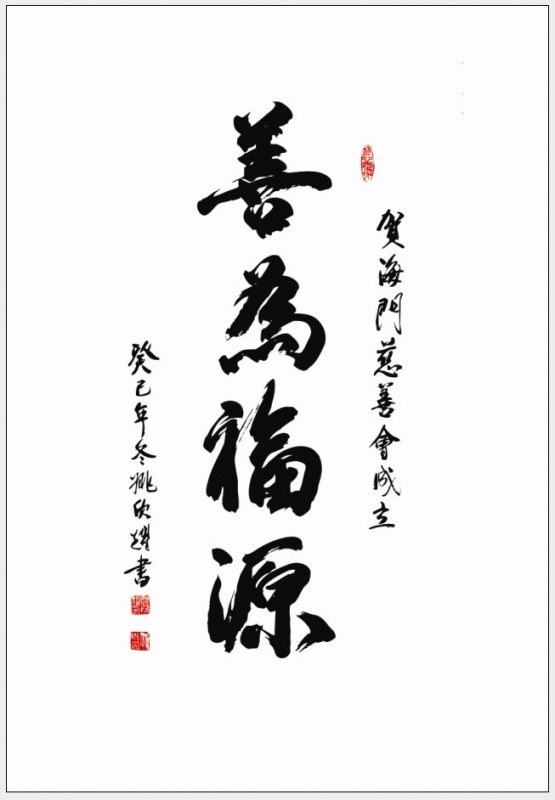 賀海門慈善會成立
善為福源
癸巳年冬姚欣耀書